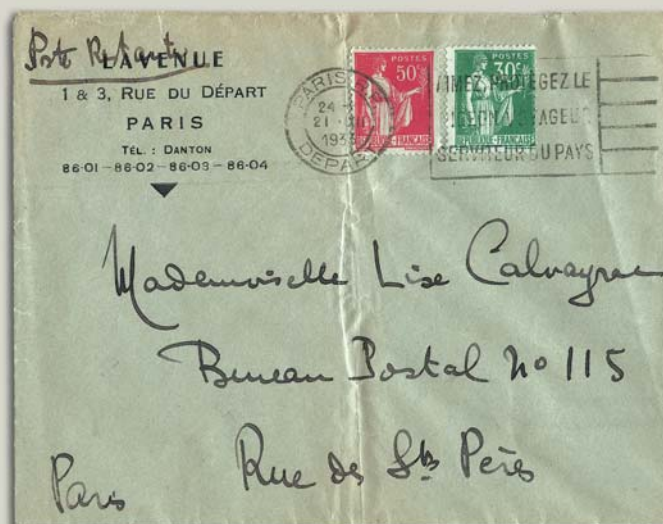 Poste Restante
LAVENUE
1 & 3, RUE DU DÉPART
PARIS
TÉL. : DANTON
86-01 – 86-02 – 86-03 – 86-04
POSTES
50c
RÉPUBLIQUE-FRANÇAISE
POSTES
30c
RÉPUBLIQUE-FRANÇAISE
PARIS
24
21
1933
DEPART
AIMEZ, PROTÉGEZ LE
PIGEON VOYAGEUR
SERVITEUR DU PAYS
Mademoiselle Lise Calvayrac
Bureau Postal No 115
Rue des Sts Pères
Paris